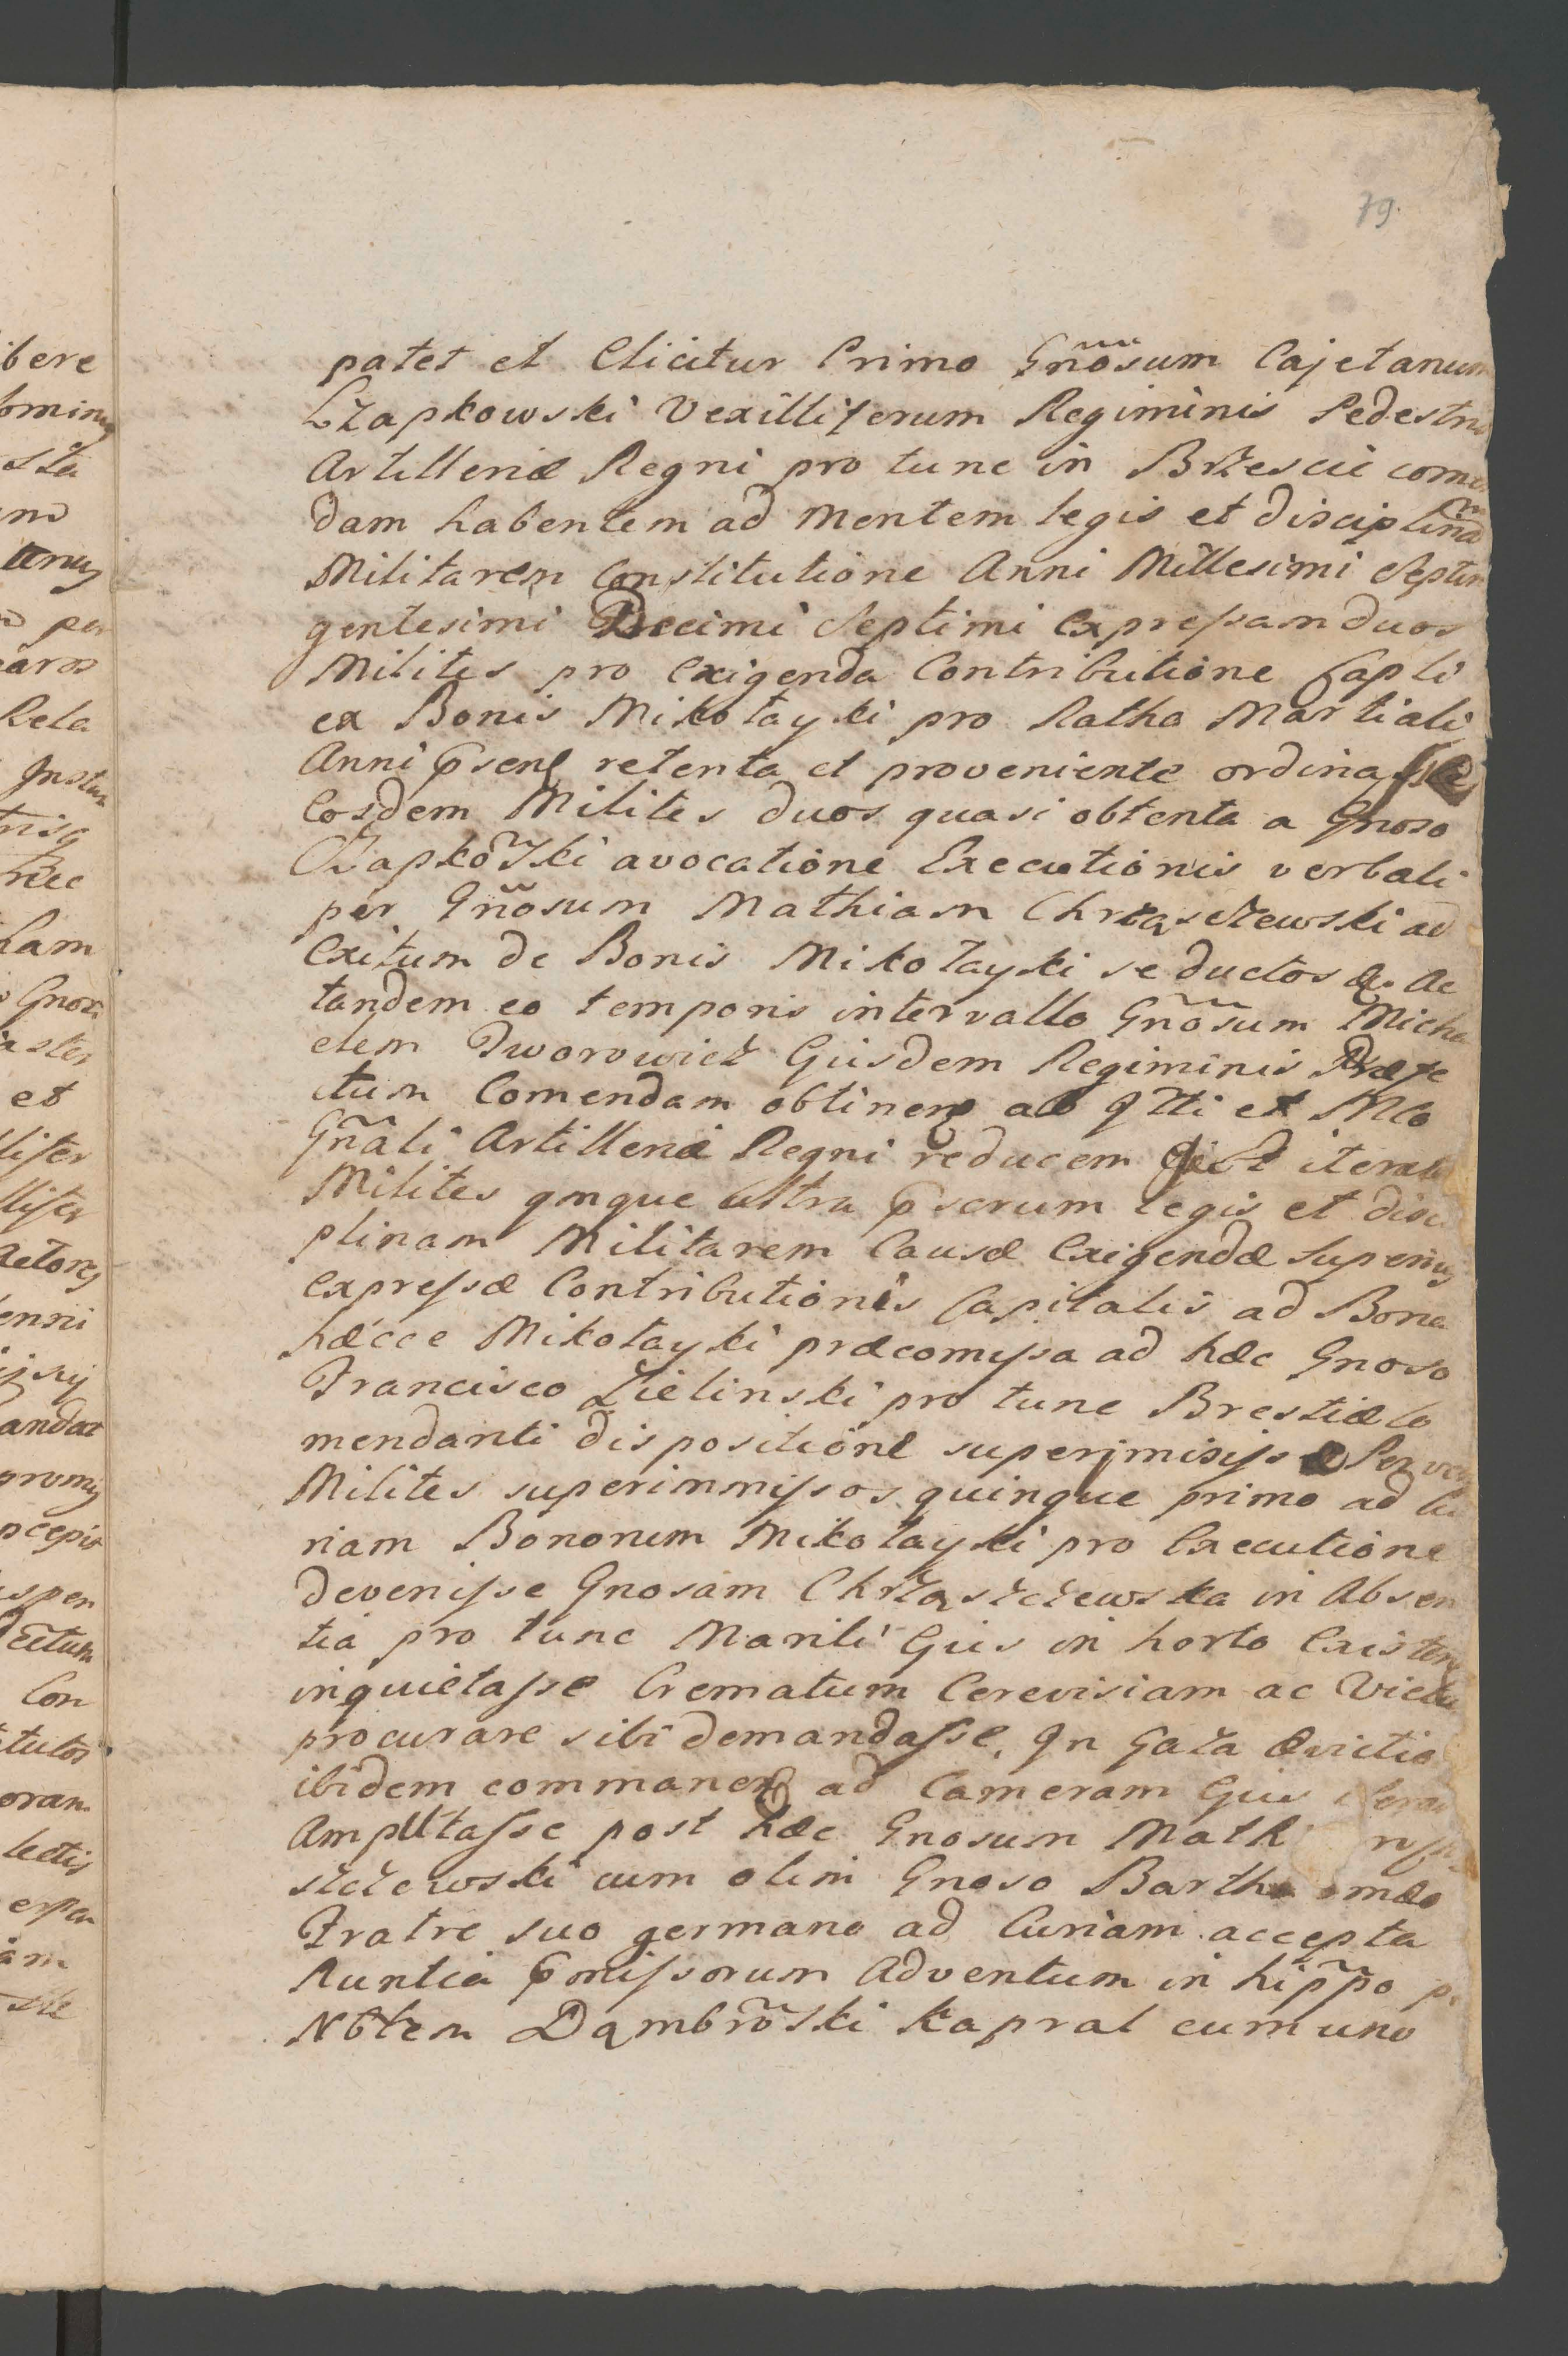 79.
bere
oming
sta
tenus
per
Rela
Instan
nec
tam
Gnosi
et
lifer
llifer
actores
andat
promig
spen
ctum
Con
tutos
oran
lectis
am
patet et Elicitur Primo Gnõsum Cajetanum
Czapkowski Vexilliferum Regiminis Pedestris
Artilleriæ Regni pro tunc in Brzescie come
dam habentem ad mentem legis et disciplinã
Militarem Constitutione Anni Millesimi Septin
gentesimi Decimi Septimi Expressam duos
Milites pro Exigenda Contributione Capli
ex Bonis Mikołayki pro Ratha Martiali
Anni p̃sen retenta et proveniente ordinasse
Eosdem Milites duos quasi obtenta a Gnoso
Czapkõwski avocatione Executionis verbali
per Gnõsum Mathiam Chrząsczewski ad
Exitum de Bonis Mikołayki seductos &. Ac
tandem eo temporis intervallo Gnõsum Micha
elem Dworowicz Ejusdem Regiminis Præfe
ctum Comendam obtinen ab Illi et Mco
Gnãli Artilleriæ Regni reducem iterato
Milites qnque ultra p̃scrum legis et disci
plinam Militarem Causæ Exigendæ Superius
Expressæ Contributionis Capitalis ad Bona
hæcce Mikołayki præcomissa ad hæc Gnoso
Francisco Zielinski pro tunc Brestiæ Co
mendanti dispositione superimisisse
Milites superimmissos quinque primo ad Cu
riam Bonorum Mikołayki pro Executione
devenisse Gnosam Chrząszczewska in Absen
tia pro tunc Mariti Ejus in horto Existen
inquietasse Crematum Cerevisiam ac Victu
procurare sibi demandasse, In Gaza Evictio
ibidem commanen ad Cameram Ejus
Amputasse post hæc Gnosum Math
szczewski cum olim Gnoso Barth omæo
Fratre suo germano ad Curiam accepta
Nuntia p̃missorum Adventum in hip̃p̃o
Nblem Dąmbrõski Kapral cum uno